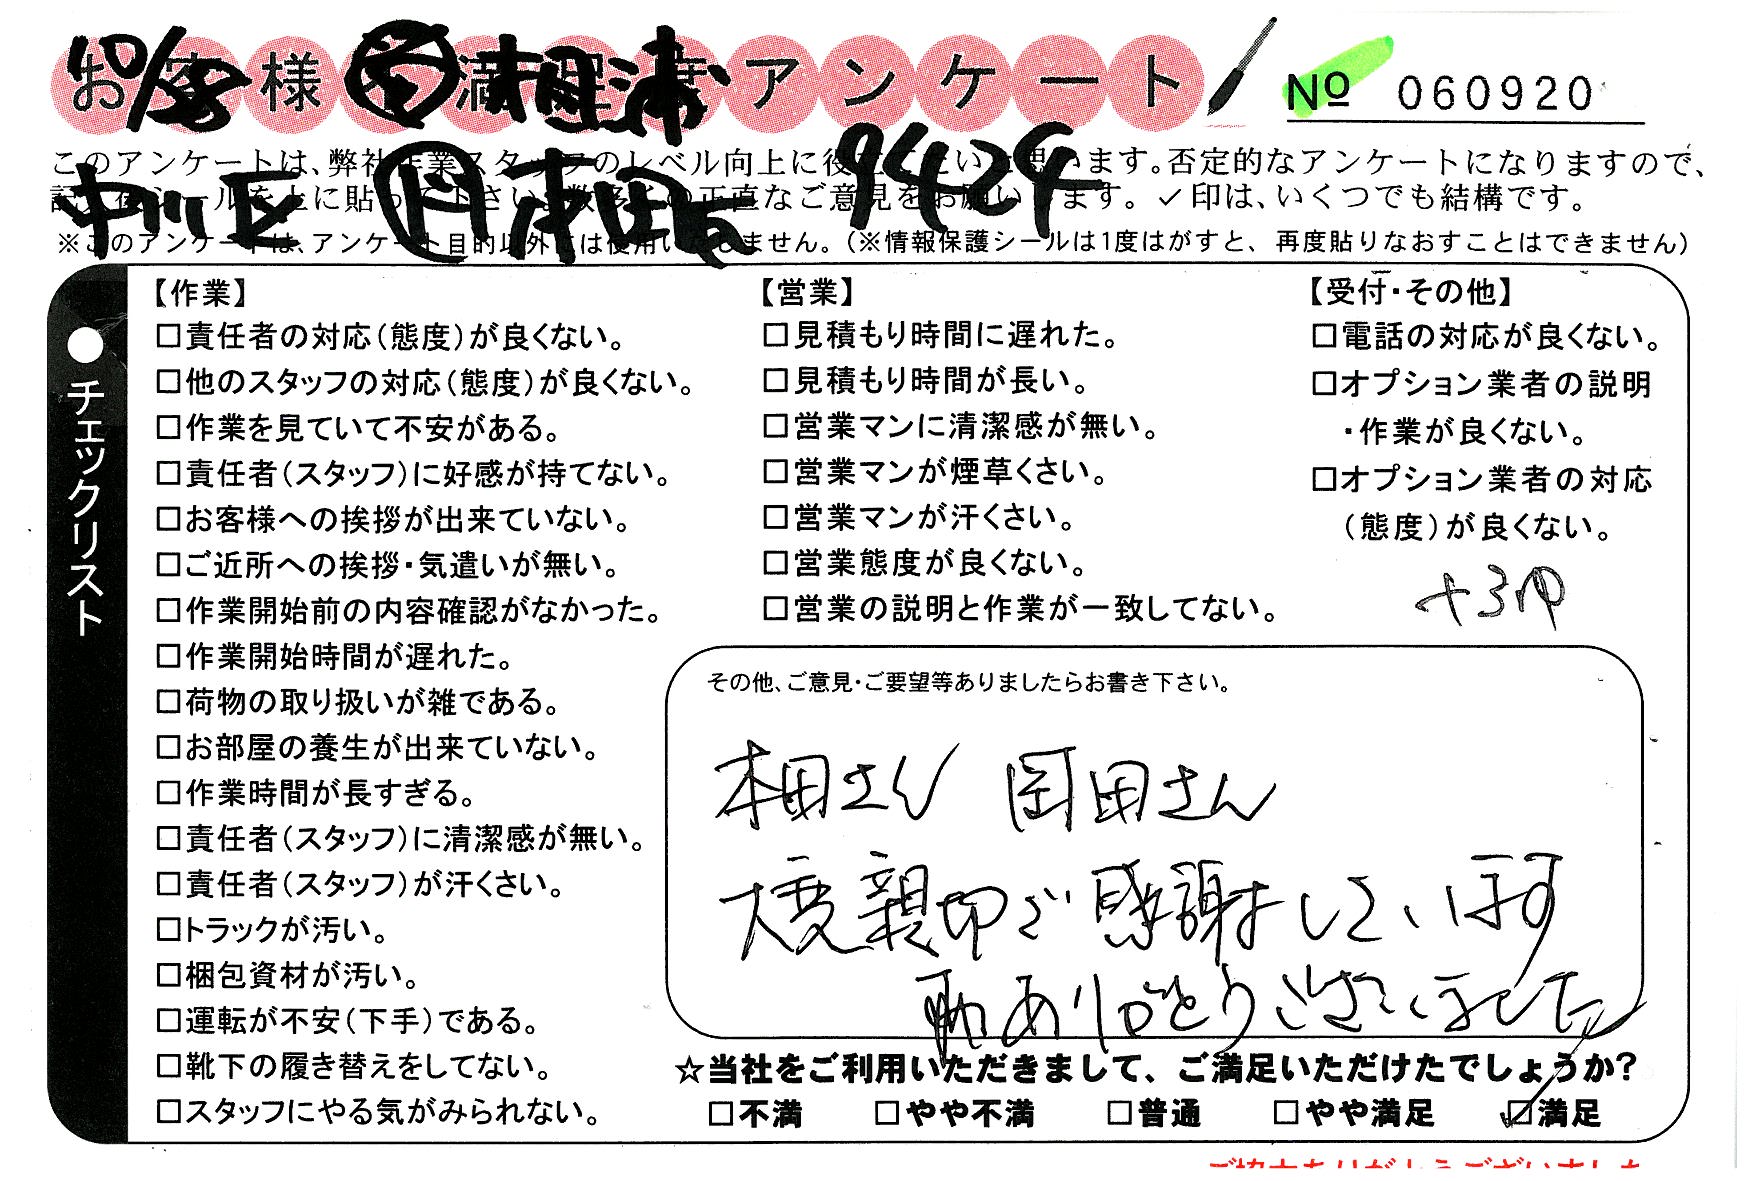 お客様満足度アンケート
№ 060920
10/8 相浦
中川区 本田 9424
このアンケートは、弊社作業スタッフのレベル向上に役立てたいと思います。否定的なアンケートになりますので、
記入後シールを上に貼って下さい。数多くの正直なご意見をお願いします。✓印は、いくつでも結構です。
※このアンケートは、アンケート目的以外には使用いたしません。(※情報保護シールは1度はがすと、再度貼りなおすことはできません)
●チェックリスト
【作業】
□責任者の対応(態度)が良くない。
□他のスタッフの対応(態度)が良くない。
□作業を見ていて不安がある。
□責任者(スタッフ)に好感が持てない。
□お客様への挨拶が出来ていない。
□ご近所への挨拶・気遣いが無い。
□作業開始前の内容確認がなかった。
□作業開始時間が遅れた。
□荷物の取り扱いが雑である。
□お部屋の養生が出来ていない。
□作業時間が長すぎる。
□責任者(スタッフ)に清潔感が無い。
□責任者(スタッフ)が汗くさい。
□トラックが汚い。
□梱包資材が汚い。
□運転が不安(下手)である。
□靴下の履き替えをしてない。
□スタッフにやる気がみられない。
【営業】
□見積もり時間に遅れた。
□見積もり時間が長い。
□営業マンに清潔感が無い。
□営業マンが煙草くさい。
□営業マンが汗くさい。
□営業態度が良くない。
□営業の説明と作業が一致してない。
【受付・その他】
□電話の対応が良くない。
□オプション業者の説明
・作業が良くない。
□オプション業者の対応
(態度)が良くない。
ナシ
その他、ご意見・ご要望等ありましたらお書き下さい。
本田さん 岡田さん
大変親切で感謝をしています
ありがとうございました
☆当社をご利用いただきまして、ご満足いただけたでしょうか?
□不満 □やや不満 □普通 □やや満足 ☑満足
ご協力ありがとうございました